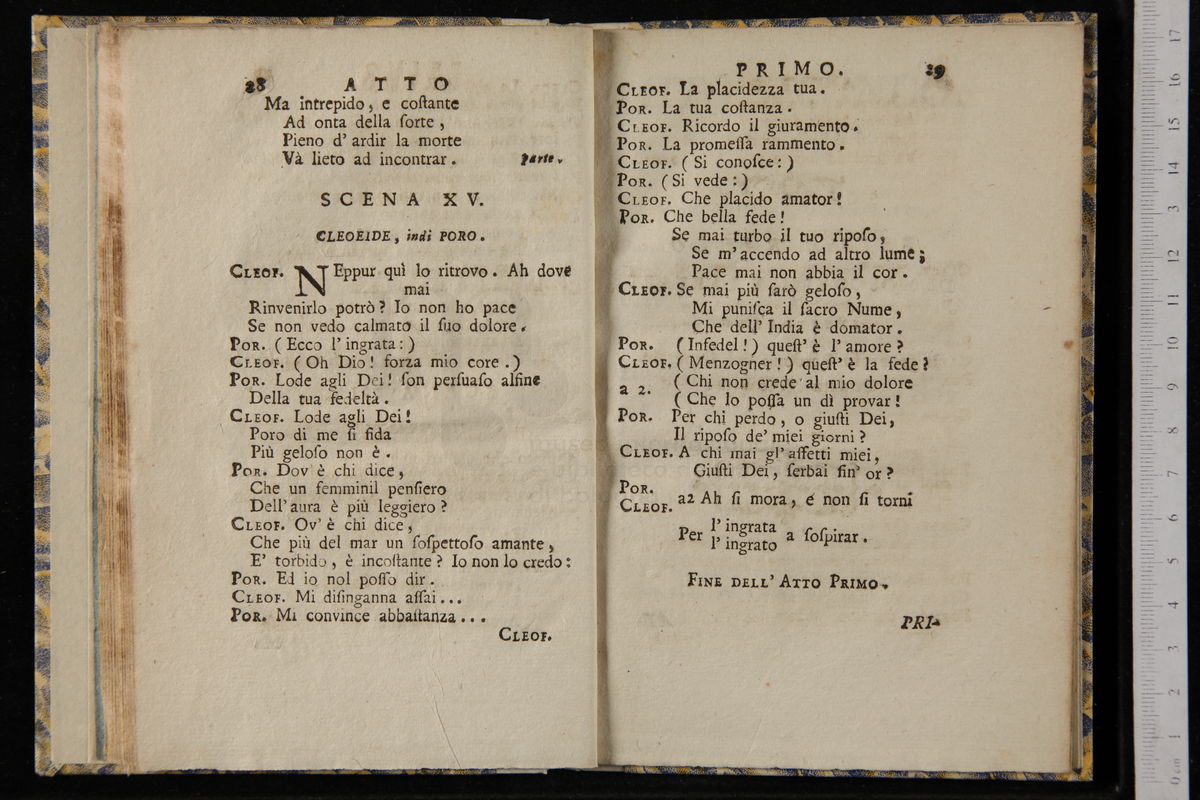 28 ATTO
Ma intrepido, e coſtante
Ad onta della ſorte,
Pieno d' ardir la morte
Và lieto ad incontrar. parte.
SCENA XV.
CLEOFIDE, indi PORO.
CLEOF. NEppur quì lo ritrovo. Ah dove
mai
Rinvenirlo potrò? Io non ho pace
Se non vedo calmato il ſuo dolore.
POR. (Ecco l' ingrata:)
CLEOF. (Oh Dio! forza mio core.)
POR. Lode agli Dei! ſon perſuaſo alfine
Della tua fedeltà.
CLEOF. Lode agli Dei!
Poro di me ſi fida
Più geloſo non è.
POR. Dov' è chi dice,
Che un femminil penſiero
Dell' aura è più leggiero?
CLEOF. Ov' è chi dice,
Che più del mar un ſoſpettoſo amante,
E' torbido, è incoſtante? Io non lo credo:
POR. Ed io nol poſſo dir.
CLEOF. Mi diſinganna aſſai...
POR. Mi convince abbaſtanza...
CLEOF.
PRIMO. 29
CLEOF. La placidezza tua.
POR. La tua coſtanza.
CLEOF. Ricordo il giuramento.
POR. La promeſſa rammento.
CLEOF. (Si conoſce:)
POR. (Si vede:)
CLEOF. Che placido amator!
POR. Che bella fede!
Se mai turbo il tuo ripoſo,
Se m' accendo ad altro lume;
Pace mai non abbia il cor.
CLEOF. Se mai più ſarò geloſo,
Mi puniſca il ſacro Nume,
Che dell' India è domator.
POR. (Infedel!) queſt' è l' amore?
CLEOF. (Menzogner!) queſt' è la fede?
a 2. (Chi non crede al mio dolore
(Che lo poſſa un dì provar!
POR. Per chi perdo, o giuſti Dei,
Il ripoſo de' miei giorni?
CLEOF. A chi mai gl' affetti miei,
Giuſti Dei, ſerbai ſin' or?
POR.
CLEOF. a2 Ah ſi mora, e non ſi torni
Per l' ingrata a ſoſpirar.
l' ingrato
FINE DELL' ATTO PRIMO.
PRI-
0 cm 1 2 3 4 5 6 7 8 9 10 11 12 13 14 15 16 17